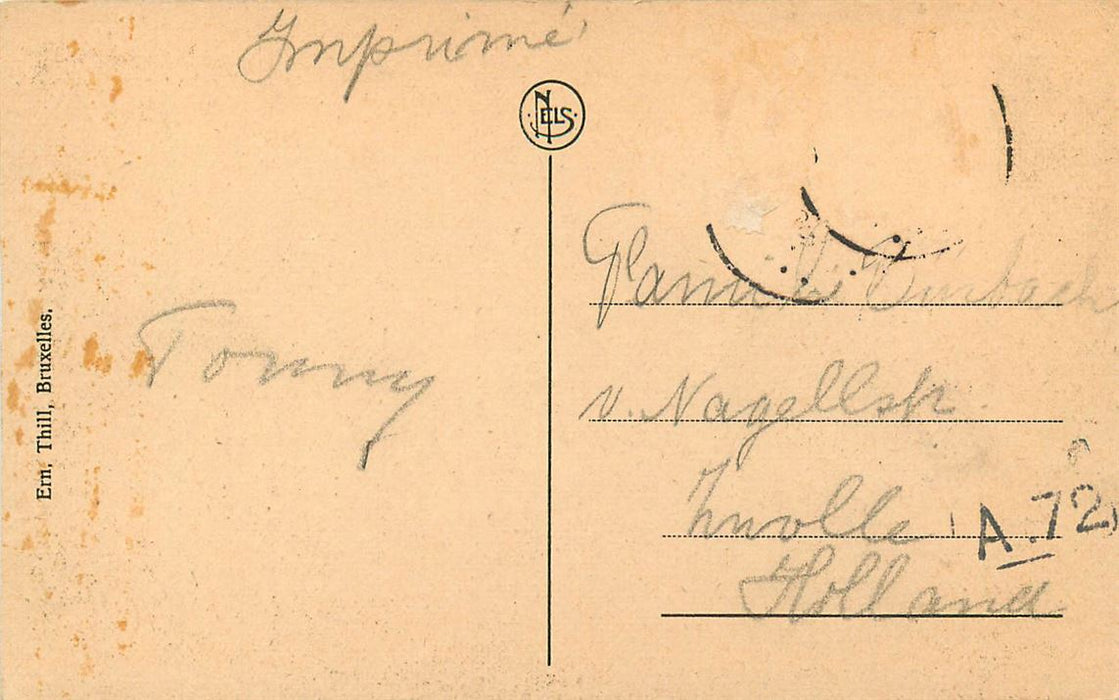 Imprimé
NELS
Ern. Thill, Bruxelles.
Tonny
Familie
v. Nagellstr.
Zwolle
Holland
A.72